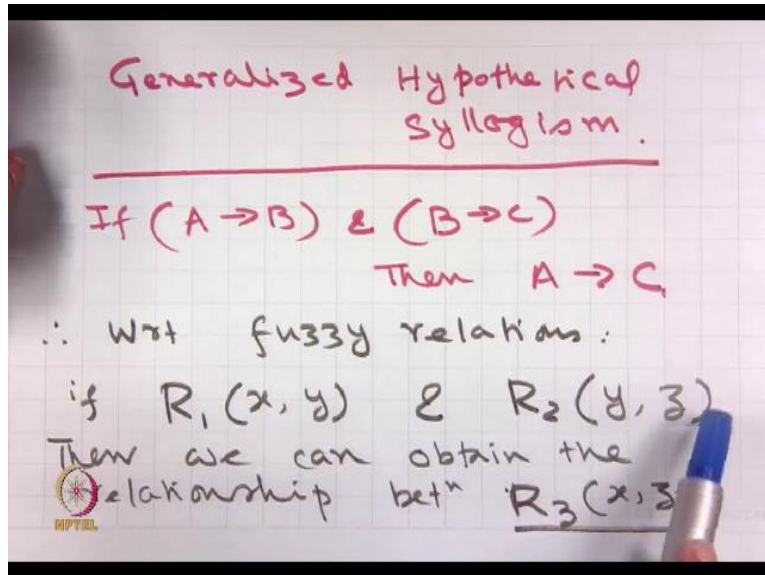 Generalized Hypothetical
Syllogism.
If (A → B) & (B → C)
Then A → C,
∴ Wrt fuzzy relations:
if R₁(x, y) & R₂(y, z)
Then we can obtain the
relationship betⁿ R₃(x, z
NPTEL